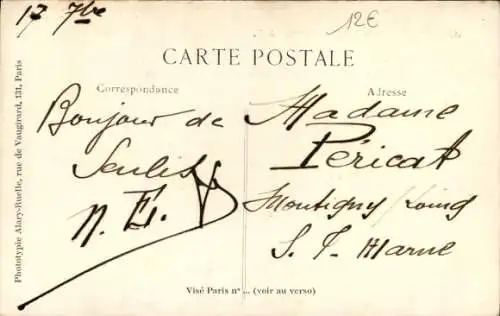 17 7bre
12€
CARTE POSTALE
Correspondance
Adresse
Bonjour de
Senlis
N. E.
Madame
Péricat
Montigny / Loing
S. T. Marne
Visé Paris n° ... (voir au verso)
Phototypie Alary-Ruelle, rue de Vaugirard, 131, Paris